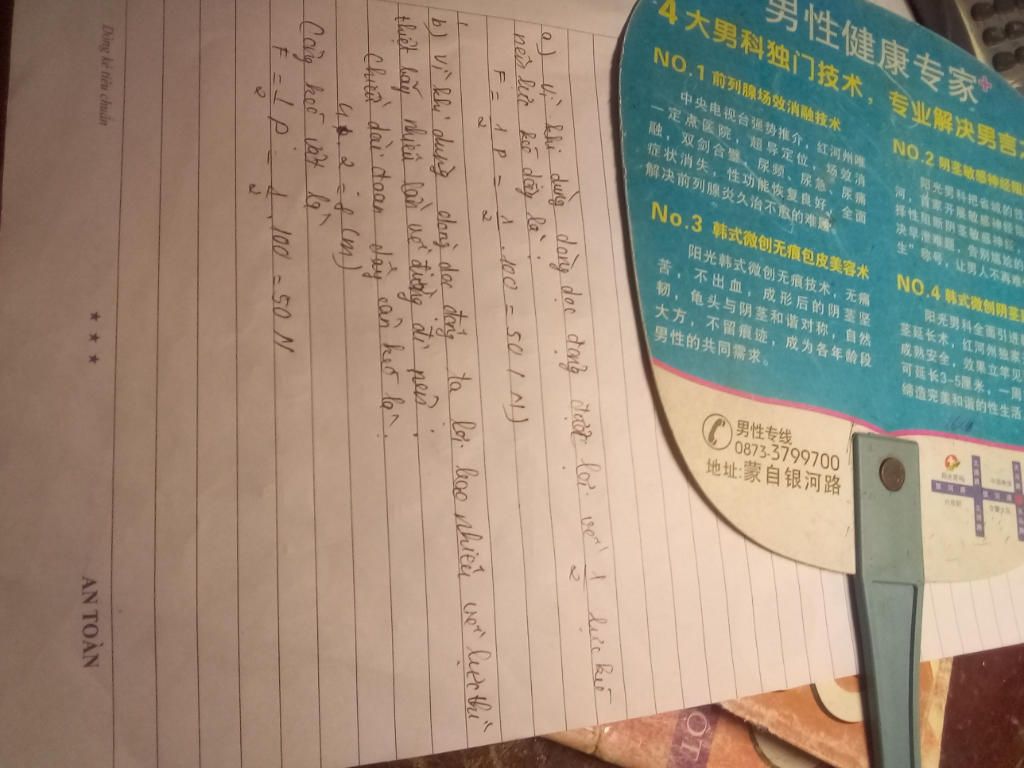 男性健康专家+
4大男科独门技术，专业解决男言
NO.1 前列腺场效消融技术
中央电视台强势推介，红河州唯
一定点医院，超导定位，场效消
融，双剑合璧，尿频、尿急、尿痛
症状消失，性功能恢复良好，全面
解决前列腺炎久治不愈的难题。
NO.2 阴茎敏感神经阻
阳光男科把省城的
河，首家开展敏感神经
择性阻断阴茎敏感神
决早泄难题，告别尴尬的
生"称号，让男人不再
No.3 韩式微创无痕包皮美容术
阳光韩式微创无痕技术，无痛
苦，不出血，成形后的阴茎坚
韧，龟头与阴茎和谐对称，自然
大方，不留痕迹，成为各年龄段
男性的共同需求。
NO.4 韩式微创阴茎
阳光男科全面引进韩
茎延长术，红河州独家
成熟安全，效果立竿见
可延长3-5厘米，一周
缔造完美和谐的性生活
男性专线
0873-3799700
地址:蒙自银河路
a) Vì khi dùng ròng rọc động được lợi với 1/2 lực kéo
nên lực kéo dây là:
F = 1/2 P = 1/2 . 100 = 50 (N)
b) Vì khi dùng ròng rọc động ta lợi bao nhiêu với lực thì
thiệt bấy nhiêu lần về đường đi nên
Chiều dài đoạn dây cần kéo là:
4. 2 = 8 (m)
Công kéo vật là
F = 1/2 P = 1/2 . 100 = 50 N
Dòng kẻ tiêu chuẩn
★ ★ ★
AN TOÀN